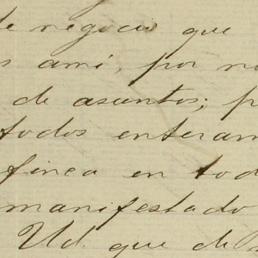 de negocio que
ami, por
de asuntos; p
todos enteram
finca en tod
manifestado
Ud. que de